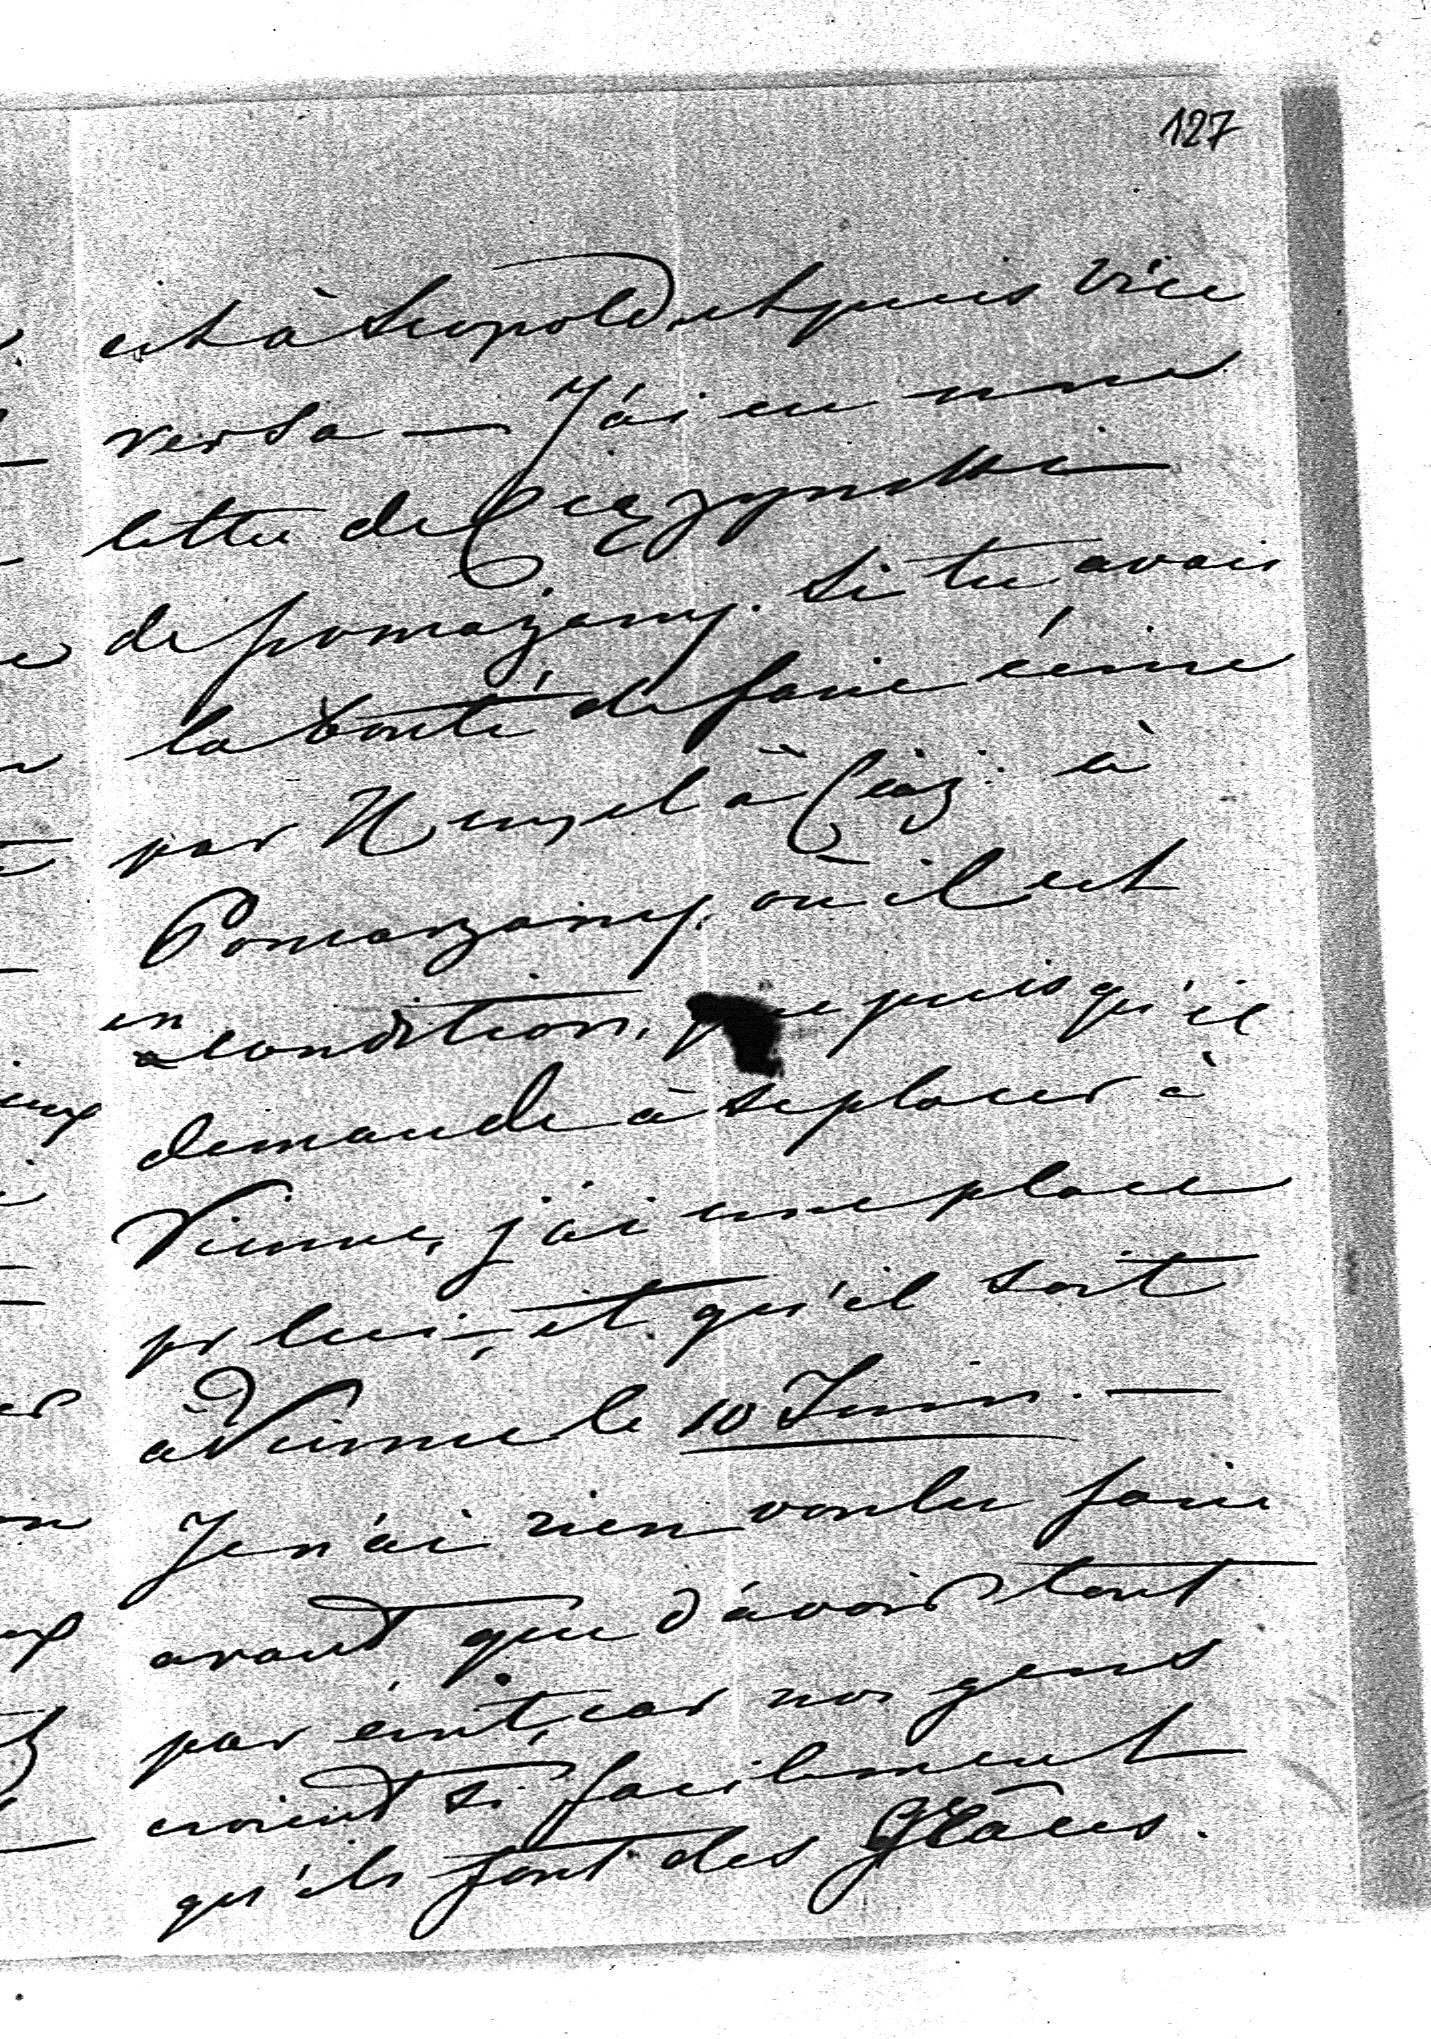 127
est à Leopold, et puis vice
versa — J'ai eu une
lettre de Ciązynski
de pomażany. Si tu avais
la bonté de faire écrire
par Hensel à Ciąz. à
Pomarzany, où il est
en condition, que puis qu'il
demande à se placer à
Vienne, j'ai une place
pr lui, — et qu'il soit
à Vienne le 10 Juin. —
Je n'ai rien voulu faire
avant que d'avoir tout
par écrit, car nos gens
croient si facilement
qu'ils font des Grâces.